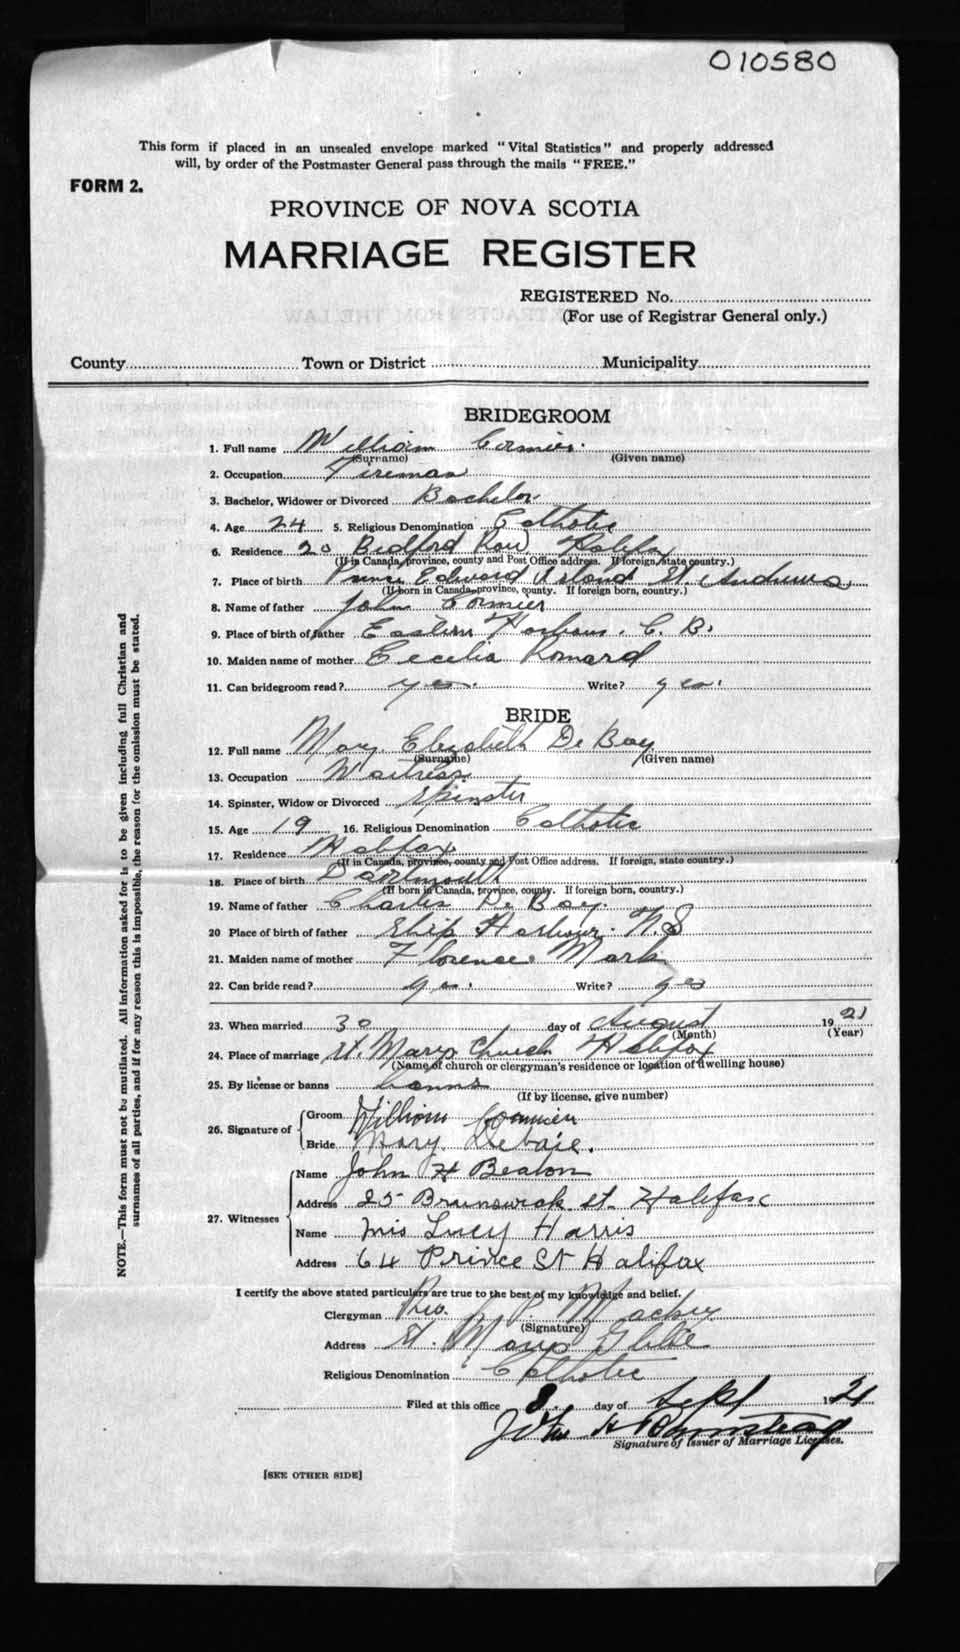 010580
This form if placed in an unsealed envelope marked "Vital Statistics" and properly addressed
will, by order of the Postmaster General pass through the mails "FREE."
FORM 2.
PROVINCE OF NOVA SCOTIA
MARRIAGE REGISTER
REGISTERED No.
(For use of Registrar General only.)
County Town or District Municipality
BRIDEGROOM
1. Full name William Cormier.
(Surname) (Given name)
2. Occupation Fireman
3. Bachelor, Widower or Divorced Bachelor
4. Age 24 5. Religious Denomination Catholic
6. Residence 20 Bedford Row Halifax
(If in Canada, province, county and Post Office address. If foreign, state country.)
7. Place of birth Prince Edward Island St. Andrews
(If born in Canada, province, county. If foreign born, country.)
8. Name of father John Cormier
9. Place of birth of father Eastern Harbour. C. B.
10. Maiden name of mother Cecelia Romard
11. Can bridegroom read? yes. Write? yes.
BRIDE
12. Full name Mary Elizabeth De Bay
(Surname) (Given name)
13. Occupation Waitress
14. Spinster, Widow or Divorced Spinster
15. Age 19 16. Religious Denomination Catholic
17. Residence Halifax
(If in Canada, province, county and Post Office address. If foreign, state country.)
18. Place of birth Dartmouth
(If born in Canada, province, county. If foreign born, country.)
19. Name of father Charles De Bay.
20 Place of birth of father Ship Harbour. N.S
21. Maiden name of mother Florence Mark
22. Can bride read? yes. Write? yes
23. When married 30 day of August 1921
(Month) (Year)
24. Place of marriage St. Marys Church Halifax
(Name of church or clergyman's residence or location of dwelling house)
25. By license or banns banns
(If by license, give number)
26. Signature of
Groom William Cormier
Bride Mary Debaie.
27. Witnesses
Name John H Beaton
Address 25 Brunswick st. Halifax
Name Mrs Lucy Harris
Address 64 Prince St Halifax
I certify the above stated particulars are true to the best of my knowledge and belief.
Clergyman Rev. P. Mackey
(Signature)
Address St. Marys Glebe
Religious Denomination Catholic
Filed at this office 8 day of Sept 1921
John H
Signature of Issuer of Marriage Licenses.
[SEE OTHER SIDE]
NOTE.—This form must not be mutilated. All information asked for is to be given including full Christian and
surnames of all parties, and if for any reason this is impossible, the reason for the omission must be stated.